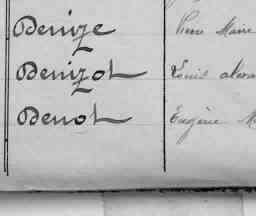 Denize Pierre Marie
Denizot Louis Alexa
Denot Eugène M